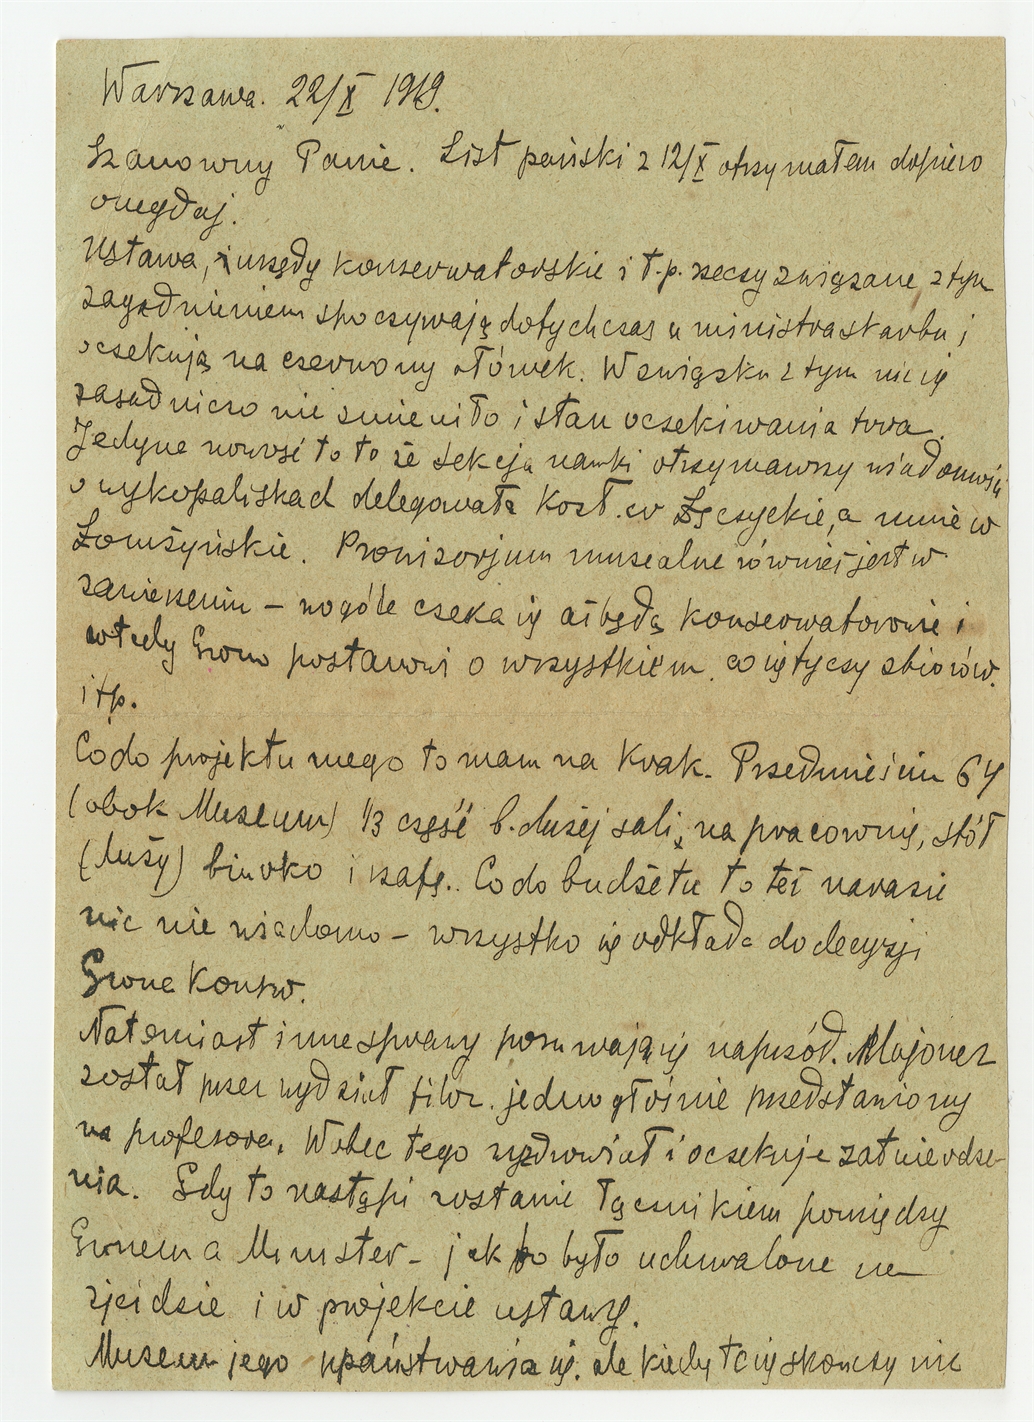 Warszawa. 22/X 1919.
Szanowny Panie. List pański z 12/X otrzymałem dopiero
onegdaj.
Ustawa, urzędy konserwatorskie i t.p. rzeczy związane z tym
zagadnieniem spoczywają dotychczas u ministra skarbu i
oczekują na czerwony ołówek. W związku z tym nic się
zasadniczo nie zmieniło i stan oczekiwania trwa.
Jedyne nowość to to że sekcja nauki otrzymawszy wiadomości
o wykopaliskach delegowała Kost. w Łęczyckie, a mnie w
Łomżyńskie. Prowizorjum muzealne również jest w
zawieszeniu – wogóle czeka się aż będą konserwatorowie i
wtedy Grono postanowi o wszystkiem co się tyczy zbiorów.
i tp.
Co do projektu mego to mam na Krak. Przedmieściu 64
(obok Museum) 1/3 część b. dużej sali, na pracownię, stół
(duży) biurko i szafę. Co do budżetu to też narazie
nic nie wiadomo – wszystko się odkłada do decyzji
Grona Konserw.
Natomiast inne sprawy posuwają się naprzód. Majorer
został przez wydział filoz. jednogłośnie przedstawiony
na profesora. Wobec tego wyzdrowiał i oczekuje zatwierdze-
nia. Gdy to nastąpi zostanie łącznikiem pomiędzy
Gronem a Minister – jak to było uchwalone na
zjeździe i w projekcie ustawy.
Museum jego upaństwawia się. ale kiedy to się skończy nie